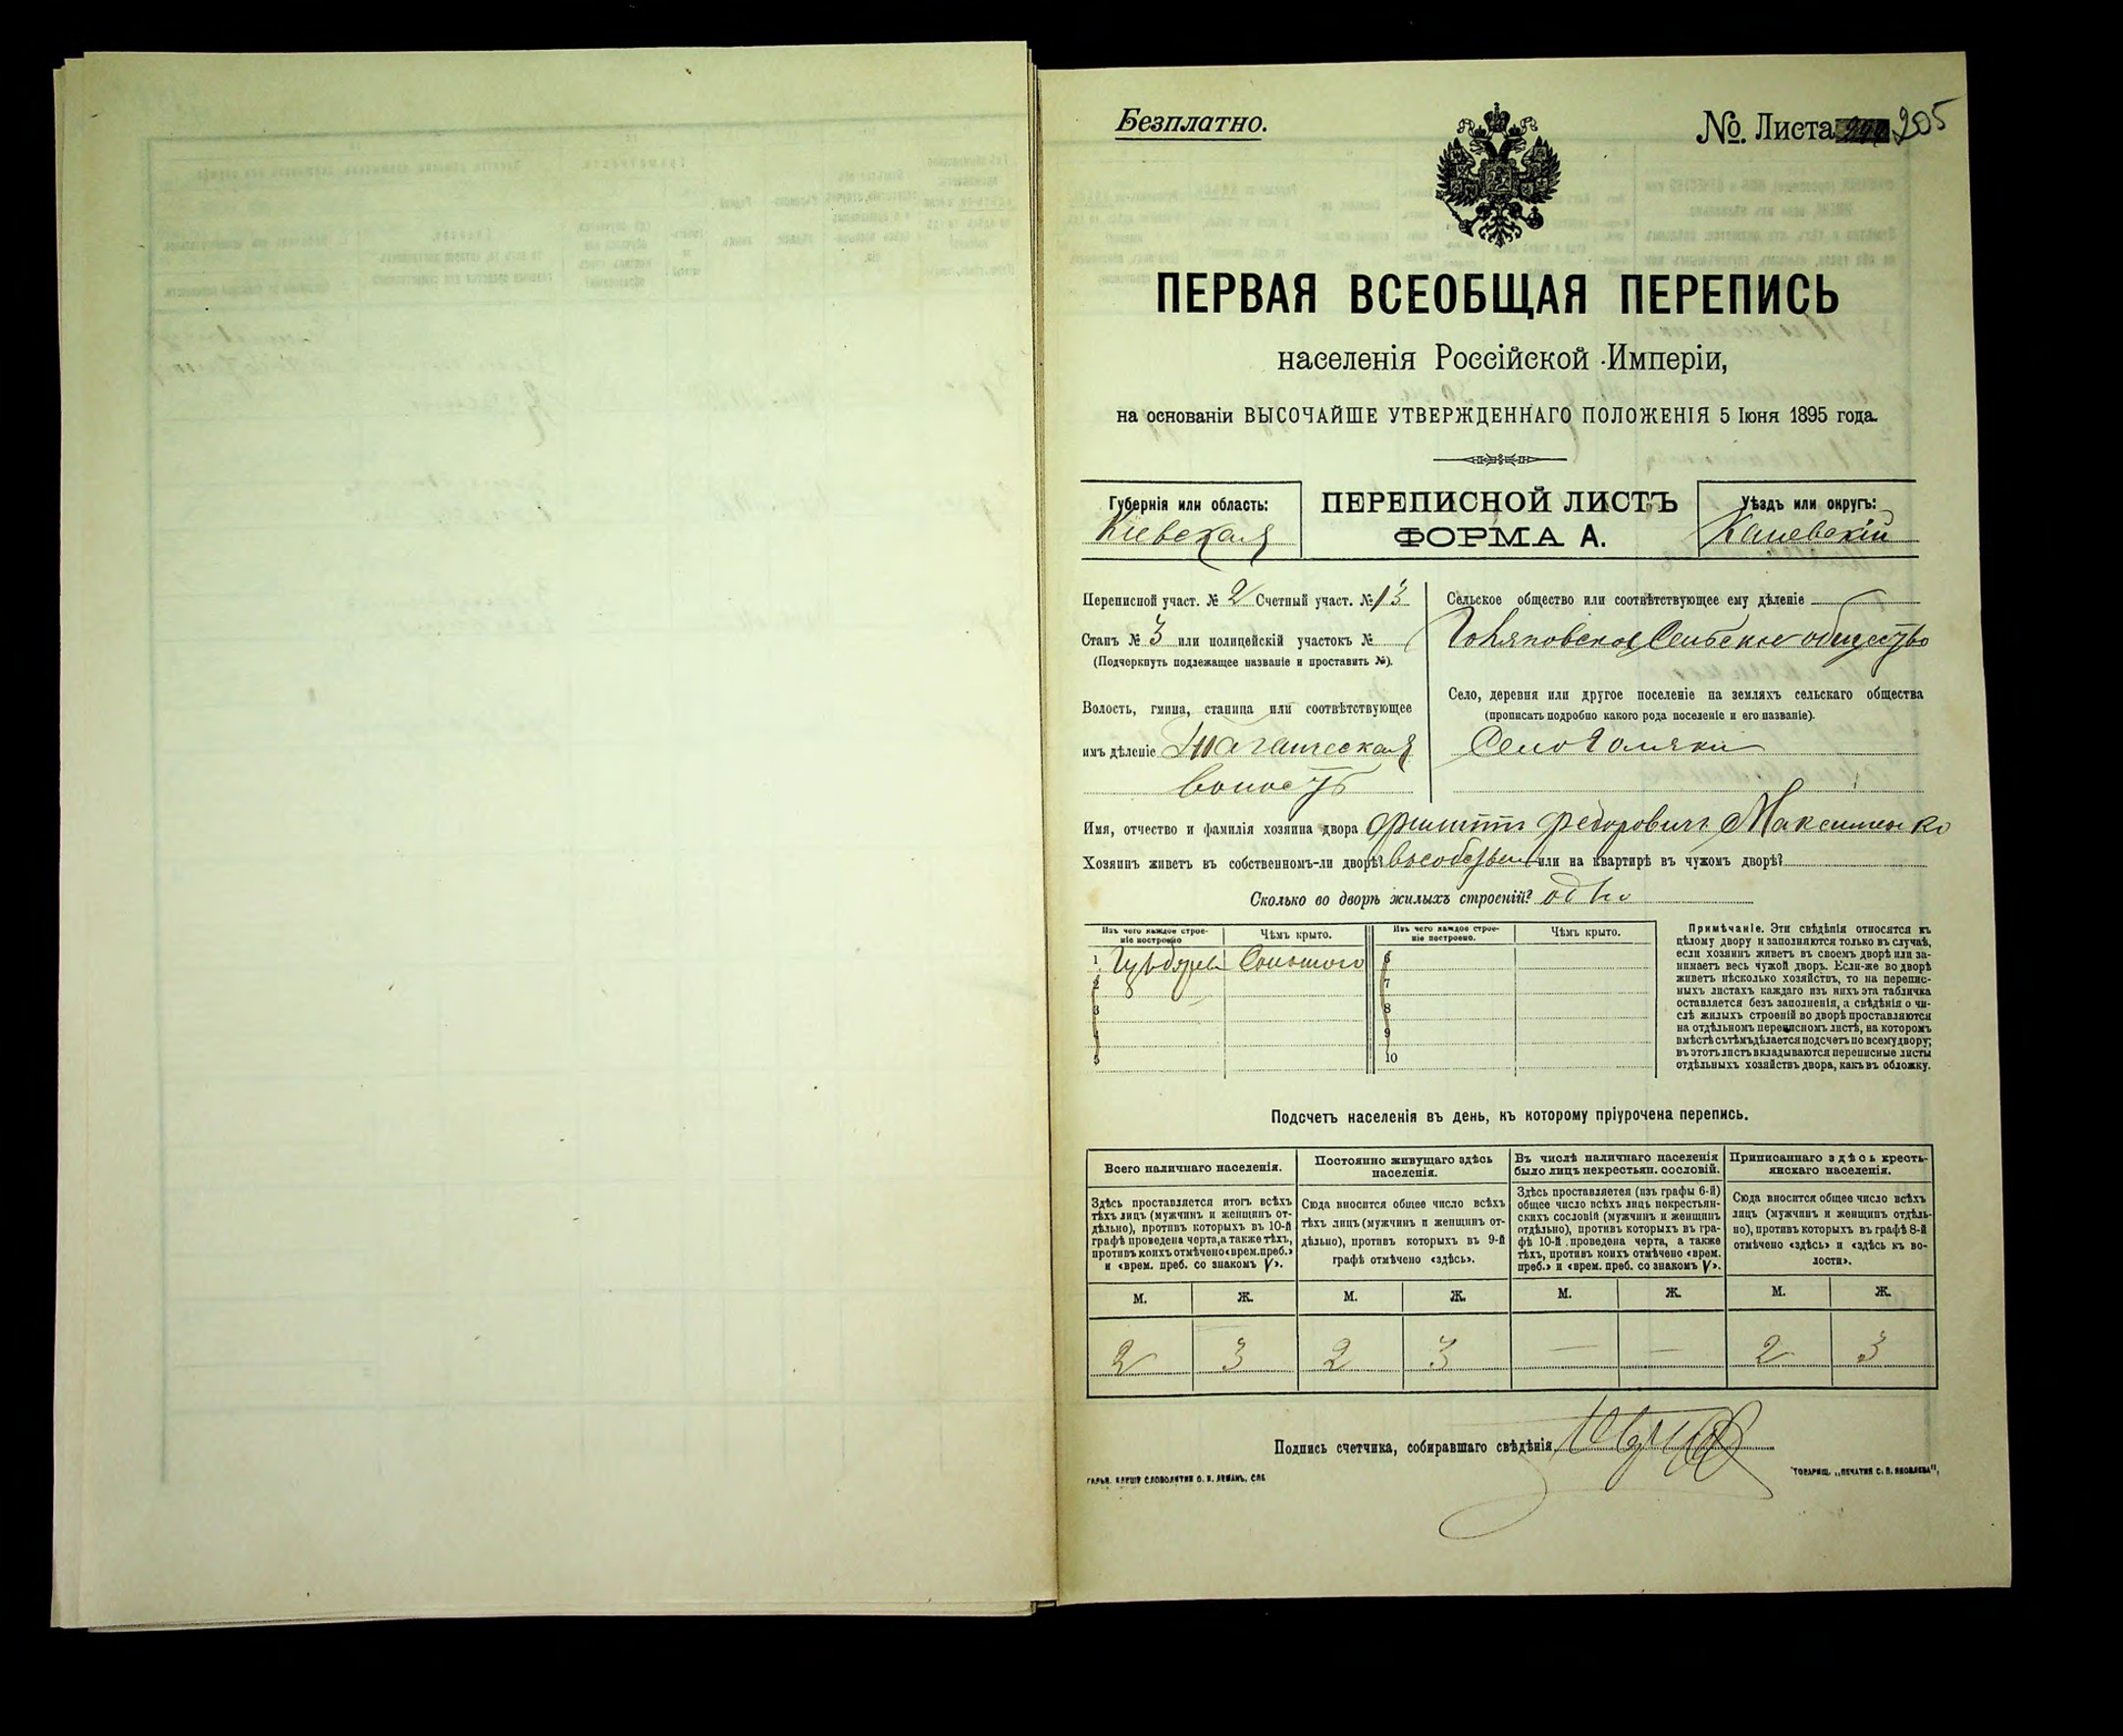 Безплатно.
№. Листа 205
ПЕРВАЯ ВСЕОБЩАЯ ПЕРЕПИСЬ
населенія Россійской Имперіи,
на основаніи ВЫСОЧАЙШЕ УТВЕРЖДЕННАГО ПОЛОЖЕНІЯ 5 Іюня 1895 года.
Губернія или область:
Кіевская
ПЕРЕПИСНОЙ ЛИСТЪ
ФОРМА А.
Уѣздъ или округъ:
Каневскій
Переписной участ. № 2 Счетный участ. № 13
Станъ № 3 или полицейскій участокъ №
(Подчеркнуть подлежащее названіе и проставить №).
Волость, гмина, станица или соотвѣтствующее
имъ дѣленіе
волость
Сельское общество или соотвѣтствующее ему дѣленіе
Сельское общество
Село, деревня или другое поселеніе на земляхъ сельскаго общества
(прописать подробно какого рода поселеніе и его названіе).
Село Голяки
Имя, отчество и фамилія хозяина двора Филиппъ Федоровичъ Максименко
Хозяинъ живетъ въ собственномъ-ли дворѣ? или на квартирѣ въ чужомъ дворѣ?
Сколько во дворѣ жилыхъ строеній? одно
Изъ чего каждое строе-
ніе построено
Чѣмъ крыто.
Изъ чего каждое строе-
ніе построено.
Чѣмъ крыто.
1 Изъ дерева Соломою 6
2 7
3 8
4 9
5 10
Примѣчаніе. Эти свѣдѣнія относятся къ
цѣлому двору и заполняются только въ случаѣ,
если хозяинъ живетъ въ своемъ дворѣ или за-
нимаетъ весь чужой дворъ. Если-же во дворѣ
живетъ нѣсколько хозяйствъ, то на перепис-
ныхъ листахъ каждаго изъ нихъ эта табличка
оставляется безъ заполненія, а свѣдѣнія о чи-
слѣ жилыхъ строеній во дворѣ проставляются
на отдѣльномъ переписномъ листѣ, на которомъ
вмѣстѣ съ тѣмъ дѣлается подсчетъ по всему двору;
въ этотъ листъ вкладываются переписные листы
отдѣльныхъ хозяйствъ двора, какъ въ обложку.
Подсчетъ населенія въ день, къ которому пріурочена перепись.
Всего наличнаго населенія.
Здѣсь проставляется итогъ всѣхъ
тѣхъ лицъ (мужчинъ и женщинъ от-
дѣльно), противъ которыхъ въ 10-й
графѣ проведена черта, а также тѣхъ,
противъ коихъ отмѣчено «врем. преб.»
и «врем. преб. со знакомъ V».
Постоянно живущаго здѣсь
населенія.
Сюда вносится общее число всѣхъ
тѣхъ лицъ (мужчинъ и женщинъ от-
дѣльно), противъ которыхъ въ 9-й
графѣ отмѣчено «здѣсь».
Въ числѣ наличнаго населенія
было лицъ некрестьян. сословій.
Здѣсь проставляется (изъ графы 6-й)
общее число всѣхъ лицъ некрестьян-
скихъ сословій (мужчинъ и женщинъ
отдѣльно), противъ которыхъ въ гра-
фѣ 10-й проведена черта, а также
тѣхъ, противъ коихъ отмѣчено «врем.
преб.» и «врем. преб. со знакомъ V».
Приписаннаго здѣсь кресть-
янскаго населенія.
Сюда вносится общее число всѣхъ
лицъ (мужчинъ и женщинъ отдѣль-
но), противъ которыхъ въ графѣ 8-й
отмѣчено «здѣсь» и «здѣсь къ во-
лости».
М. Ж. М. Ж. М. Ж. М. Ж.
2 3 2 3 — — 2 3
Подпись счетчика, собиравшаго свѣдѣнія
СЛОВОЛИТНЯ О. И. ЛЕМАНЪ, СПБ
ТОВАРИЩ. „ПЕЧАТНЯ С. П. ЯКОВЛЕВА",